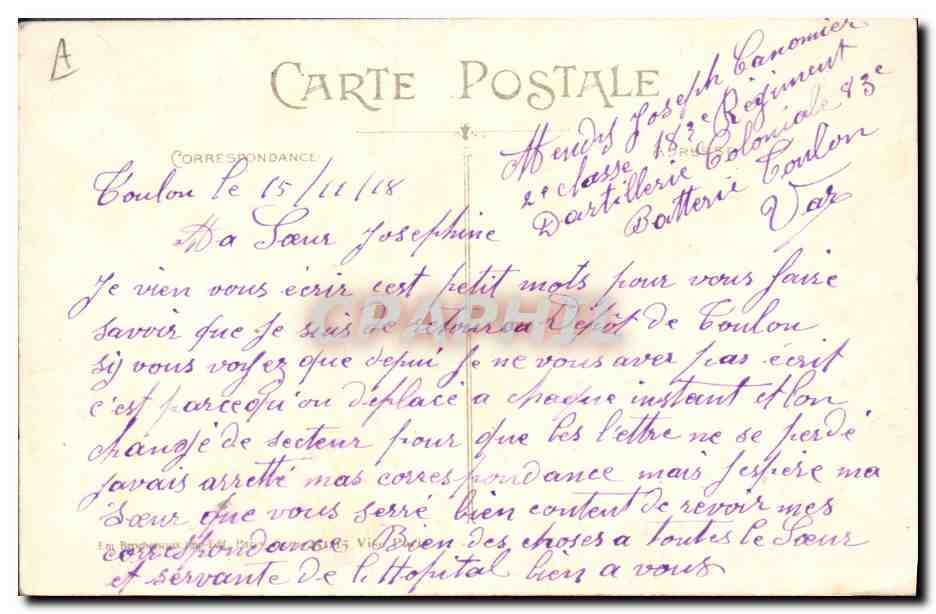 A
CARTE POSTALE
CORRESPONDANCE
Mendy Joseph Canonier
2e classe 183e Régiment
Dartillerie Coloniale 83e
Batterie Toulon
Var
Toulon le 15/11/18
Ma Sœur Josephine
Je vien vous écrir cest petit mots pour vous faire
savoir que Je suis de retour au Dépôt de Toulon
si vous voyez que depui Je ne vous aver pas écrit
c'est parcequ'on deplacé a chaque instant et l'on
changé de secteur pour que les l'ettre ne se perdé
javais arretté mas correspondance mais Jespère ma
Sœur que vous serré bien content de revoir mes
correspondance Bien des choses a toutes le Sœur
et servante de l'Hopital bien a vous
CPAPHIL